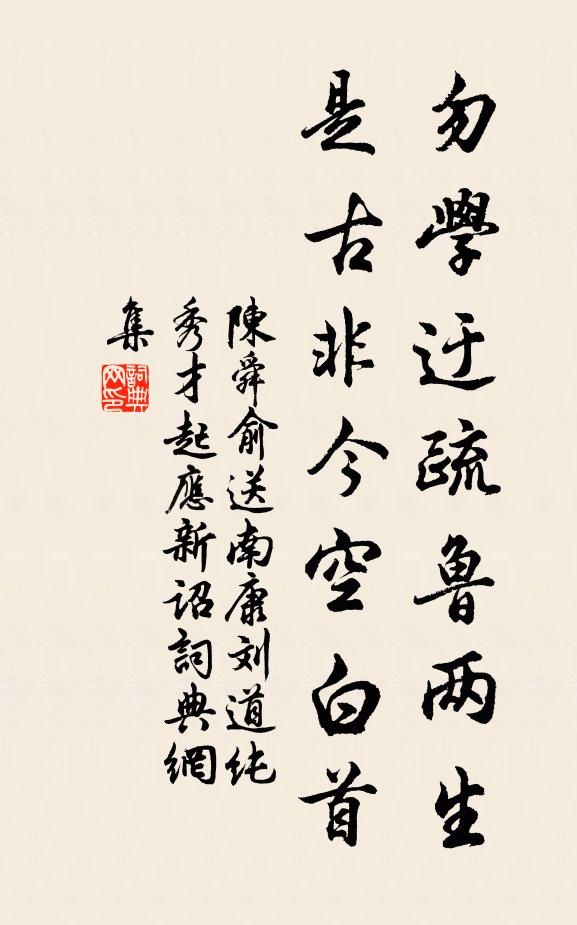 勿學迂疏魯两生
是古非今空白首
陳舜俞送南康刘道纯
秀才起應新詔詞典網
集
詞典网印